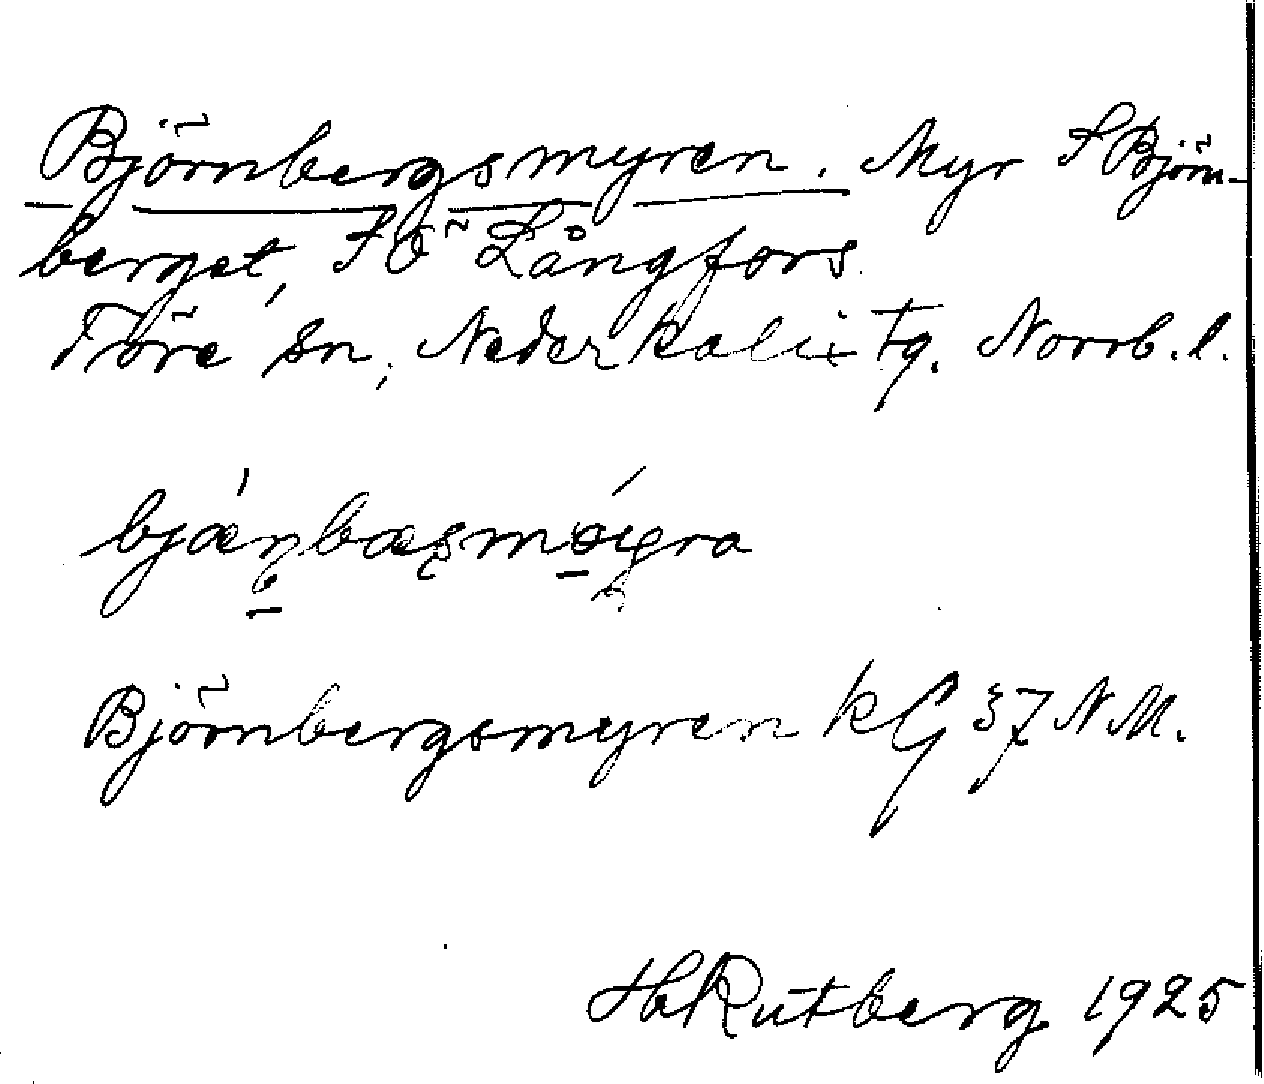 Björnbergsmyren. Myr S Björn-
berget, SÖ Långfors.
Töre sn, Nederkalix tg. Norrb. l.
Björnbergsmyren kG 37 NM.
H Rutberg 1925